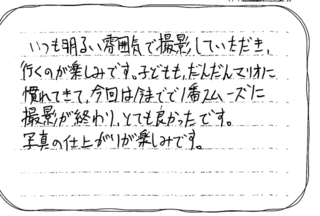 いつも明るい雰囲気で撮影していただき、
行くのが楽しみです。子どもも、だんだんマリオに
慣れてきて、今回は今までで1番スムーズに
撮影が終わり、とても良かったです。
写真の仕上がりが楽しみです。